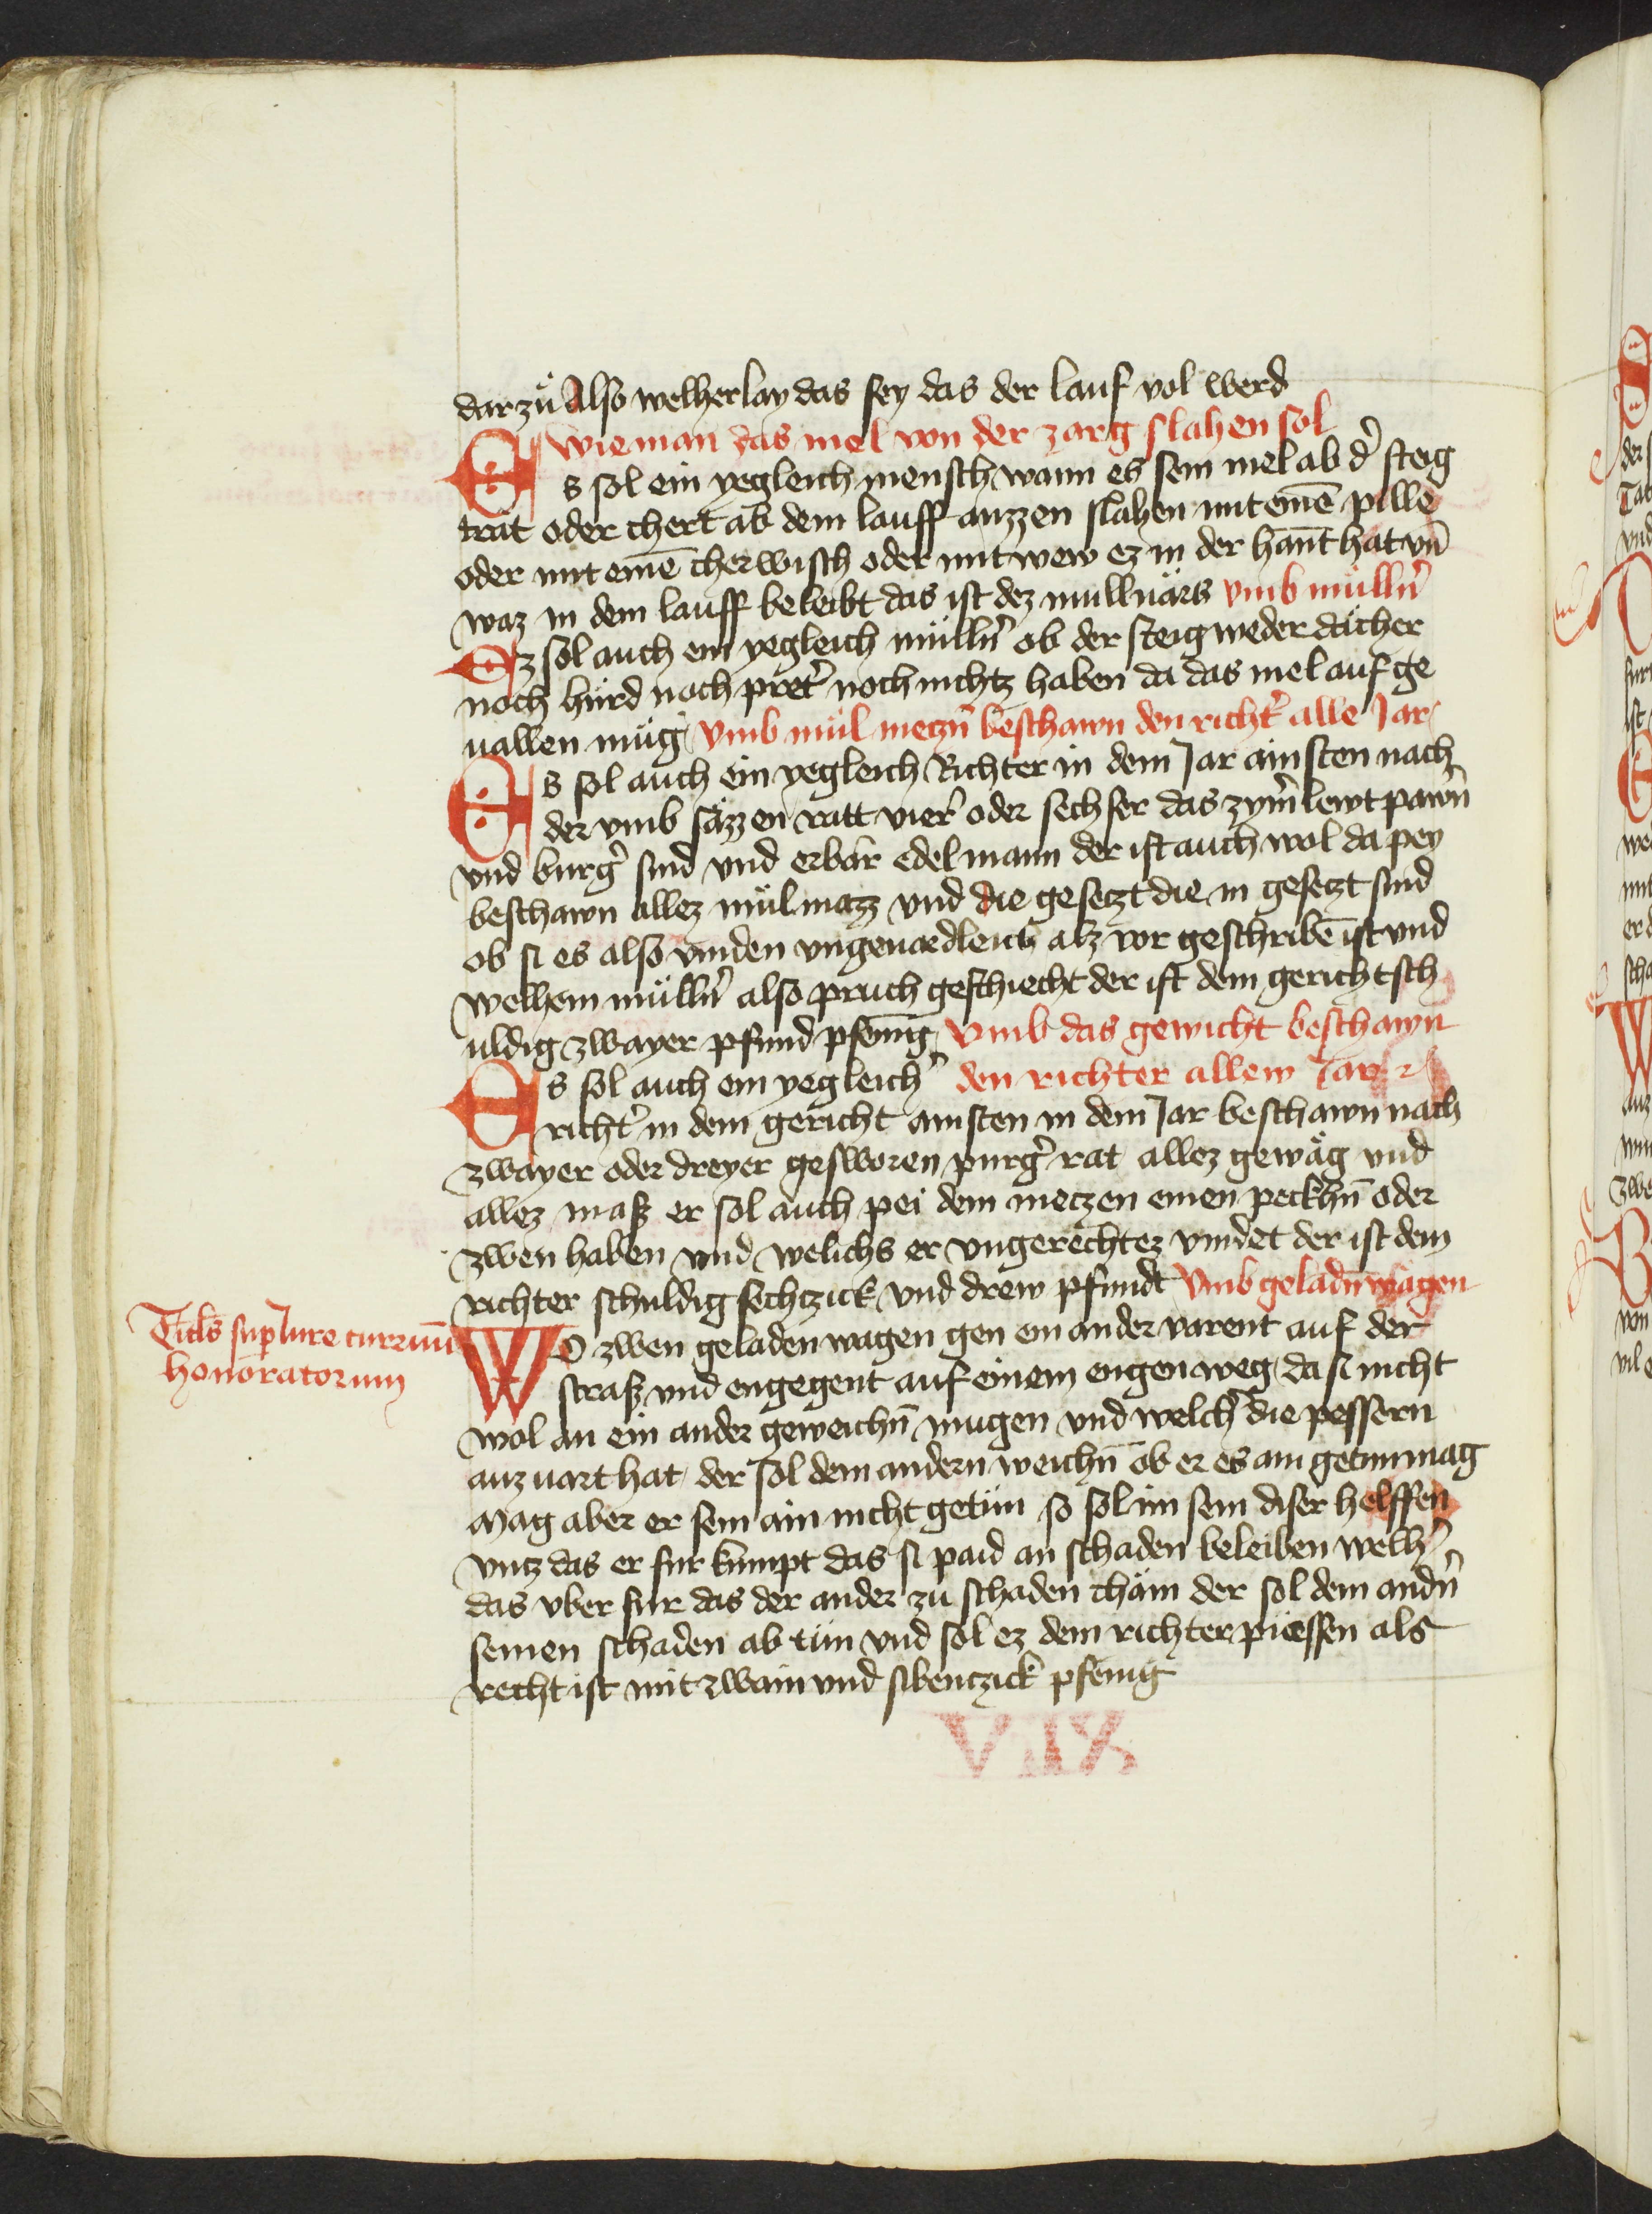 dar zů Also welherlay das sey das der lauf vol werd
Wie man das mel von der zarg slahen sol
Es sol ein yegleich mensch wann es sein mel ab dˀ steig
trät oder chert ab dem lauff auzzen slahen mit einē pille
oder mit einē cherwisch oder mit wew ez in der hannt hat vn̄
waz in dem lauff beleibt das ist dez mullnärs vmb müllnˀ
Ez sol auch ein yegleich müllnˀ ob der steig weder dächer
noch hürd noch pretˀ noch nichtz haben da das mel auf ge
uallen müg vmb mül meczn̄ beschawn den richtˀ alle Jar
Es sol auch ein yegleich Richter in dem Jar ainsten nach
der vmb säzzen ratt vierˀ oder sechser das zym̄lewt pawrn̄
vnd burgˀ sind vnd erbär edelmann der ist auch wol da pey
beschawn allez mülmazz vnd die gesetzt die in gesetzt sind
ob si es also vinden vngeuardleich alz vor geschribē ist vnd
welhem müllnˀ also pruch geschiecht der ist dem gericht sch
uldig zwayer pfund pfenīg Vmb das gewicht beschawn
Es sol auch ein yegleichˀ den richter allew Jar
richtˀ in dem gericht ainsten in dem Jar beschawn nach
zwayer oder dreyer gesworen purgˀ rat allez gewäg vnd
allez mass er sol auch pei dem meczen einen peckhn̄ oder
zwen haben vnd welichs er vngerechtez vindet der ist dem
richter schuldig sechtzick vnd drew pfundt Vmb geladn̄ wägen
Titl̄s sup̄ Jure curruū
honoratorum
WO zwen geladen wagen gen ein ander varent auf der
strass vnd engegent auf einem engen weg da si nicht
wol an ein ander geweichn̄ mugen vnd welchˀ die pessern
auzuart hat der sol dem andern weichn̄ ob er es ain getun mag
Mag aber er sein ain nicht getün so sol im sein diser helffen
vntz das er fur kumpt das si paid an schaden beleiben welhˀ
das vber fur das der ander zu schaden chäm der sol dem andn̄
seinen schaden ab tün vnd sol ez dem richter püessen als
recht ist mit zwain vnd sibenczick pfenig